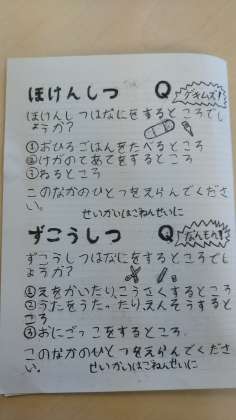 ほけんしつ Q ゲキムズ!
ほけんしつはなにをするところでし
ょうか?
①おひろごはんをたべるところ
②けがのてあてをするところ
③ねるところ
このなかのひとつをえらんでくださ
い。
せいかいはこねんせいに
ずこうしつ Q なんもん!
ずこうしつはなにをするところでし
ょうか?
①えをかいたり、こうさくするところ
②うたをうたったりえんそうすると
ころ
③おにごっこをするところ
このなかのひとつをえらんでくださ
い。
せいかいはこねんせいに